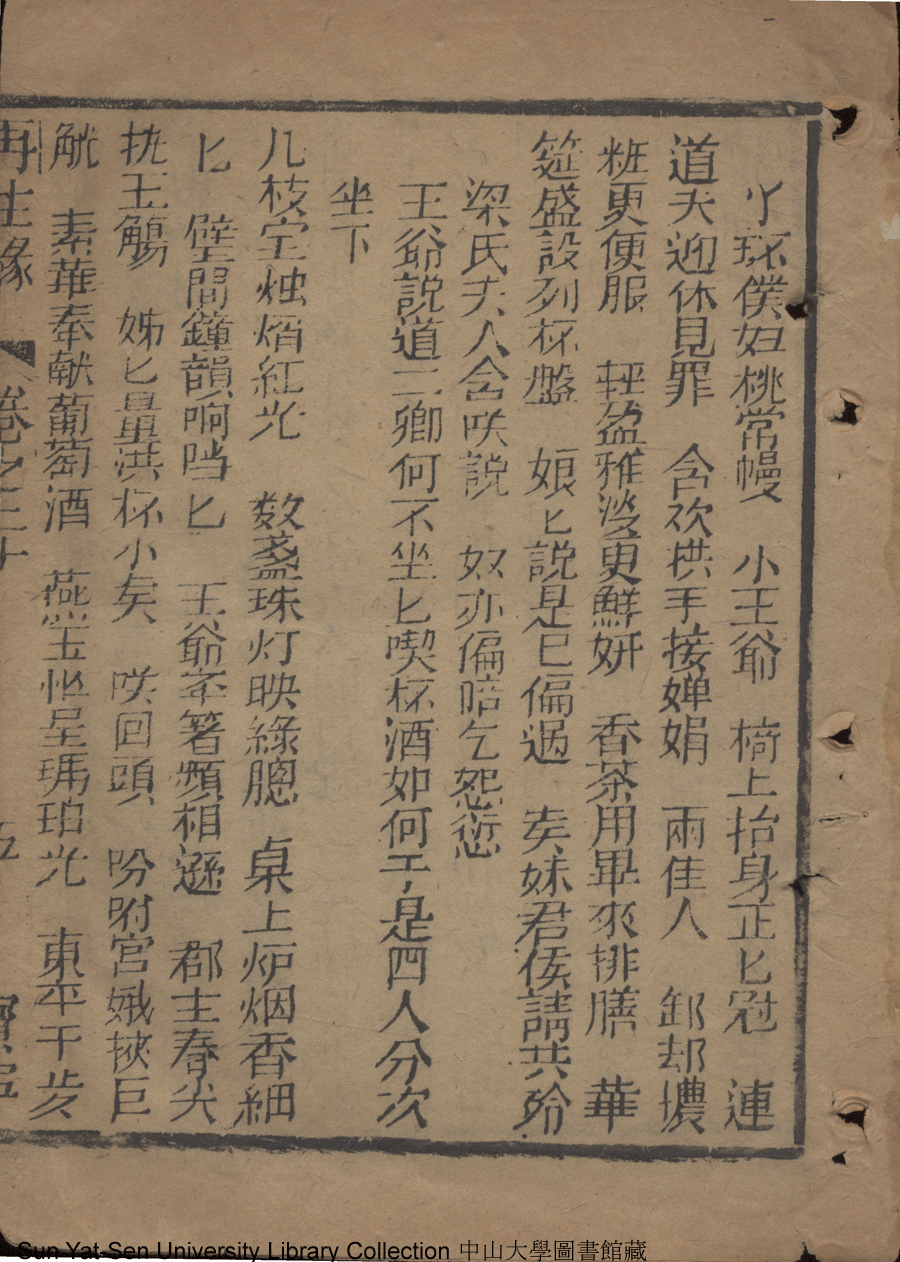 丫环僕妇桃常幔　小王爺　椅上抬身正匕冠　連
道夫迎休見罪　含欢拱手接婵娟　兩佳人　卸却濃
粧更便服　轻盈雅淡更鮮妍　香茶用畢來排膳　華
筵盛設列杯盤　娘匕説是已偏過　矣妹君侯請共飱
梁氏夫人含咲説　奴亦偏陪乞恕愆
王爺説道二卿何不坐匕喫杯酒如何于是四人分次
坐下
几枝宝烛焰紅光　数盏珠灯映綠牕　桌上炉烟香細
匕　壁間鐘韻响噹匕　王爺举箸頻相遜　郡主春尖
执玉觴　姊匕量洪杯小矣　咲回頭　吩咐宫娥换巨
觥　素華奉献葡萄酒　燕玉忙呈琥珀光　東平千歩
再生缘　卷之三十　五
Sun Yat-Sen University Library Collection 中山大學圖書館藏